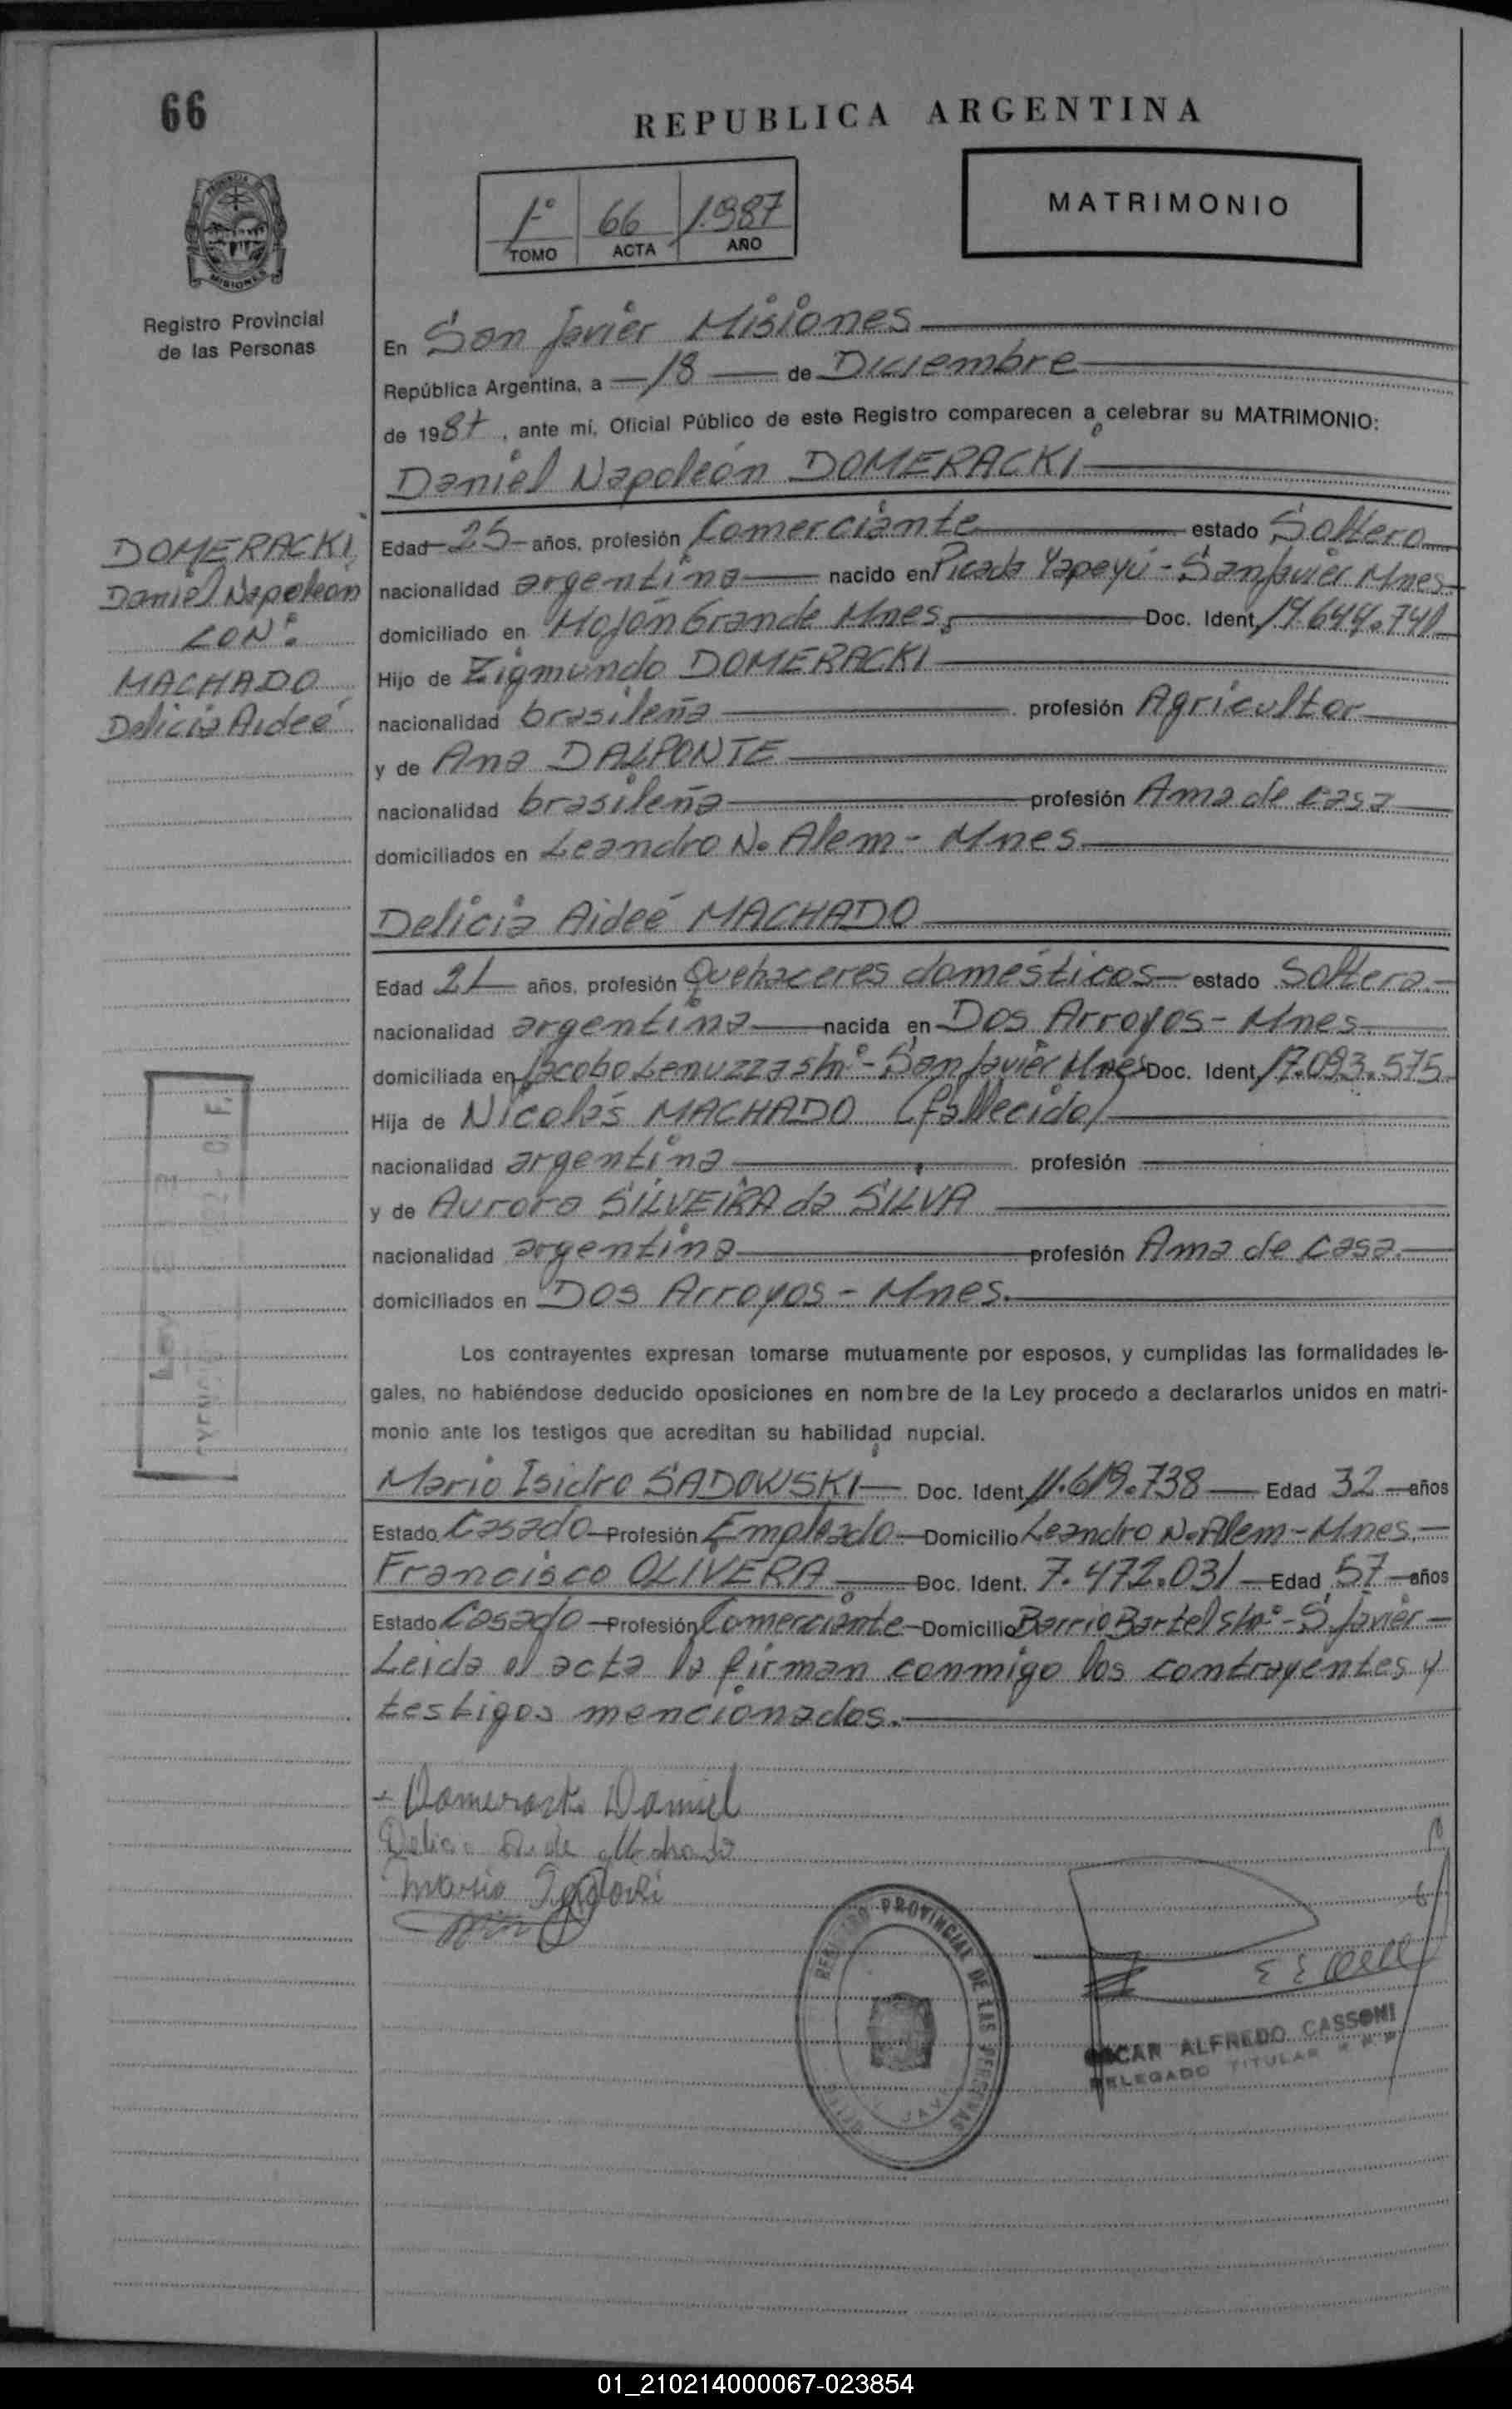 66
REPUBLICA ARGENTINA
1º 66 1.987
TOMO ACTA AÑO
MATRIMONIO
PROVINCIA
MISIONES
Registro Provincial
de las Personas
En San Javier Misiones
República Argentina, a 18 de Diciembre
de 1987, ante mí, Oficial Público de este Registro comparecen a celebrar su MATRIMONIO:
Daniel Napoleón DOMERACKI
DOMERACKI,
Daniel Napoleon
CON:
MACHADO
Delicia Aideé
Edad 25 años, profesión Comerciante estado Soltero
nacionalidad argentina nacido en Picada Yapeyú - San Javier Mnes.
domiciliado en Mojón Grande Mnes. Doc. Ident.
Hijo de Zigmundo DOMERACKI
nacionalidad brasileña profesión Agricultor
y de Ana DALPONTE
nacionalidad brasileña profesión Ama de casa
domiciliados en Leandro N. Alem - Mnes
Delicia Aideé MACHADO
Edad 21 años, profesión Quehaceres domésticos estado Soltera
nacionalidad argentina nacida en Dos Arroyos - Mnes.
domiciliada en Jacobo Lenuzza s/nº - San Javier Mnes Doc. Ident. 17.093.575
Hija de Nicolás MACHADO (fallecido)
nacionalidad argentina profesión
y de Aurora SILVEIRA da SILVA
nacionalidad argentina profesión Ama de casa.
domiciliados en Dos Arroyos - Mnes.
Los contrayentes expresan tomarse mutuamente por esposos, y cumplidas las formalidades le-
gales, no habiéndose deducido oposiciones en nombre de la Ley procedo a declararlos unidos en matri-
monio ante los testigos que acreditan su habilidad nupcial.
Mario Isidro SADOWSKI Doc. Ident. 11.619.738 Edad 32 años
Estado Casado Profesión Empleado Domicilio Leandro N. Alem - Mnes.
Francisco OLIVERA Doc. Ident. 7.472.031 Edad 57 años
Estado Casado Profesión Comerciante Domicilio Barrio Bartel s/nº - S. Javier
Leida el acta la firman conmigo los contrayentes y
testigos mencionados.
Domeracki Daniel
Delicia Aide Machado
Mario Sadoski
REGISTRO PROVINCIAL DE LAS PERSONAS
OSCAR ALFREDO CASSONI
DELEGADO TITULAR
01_210214000067-023854